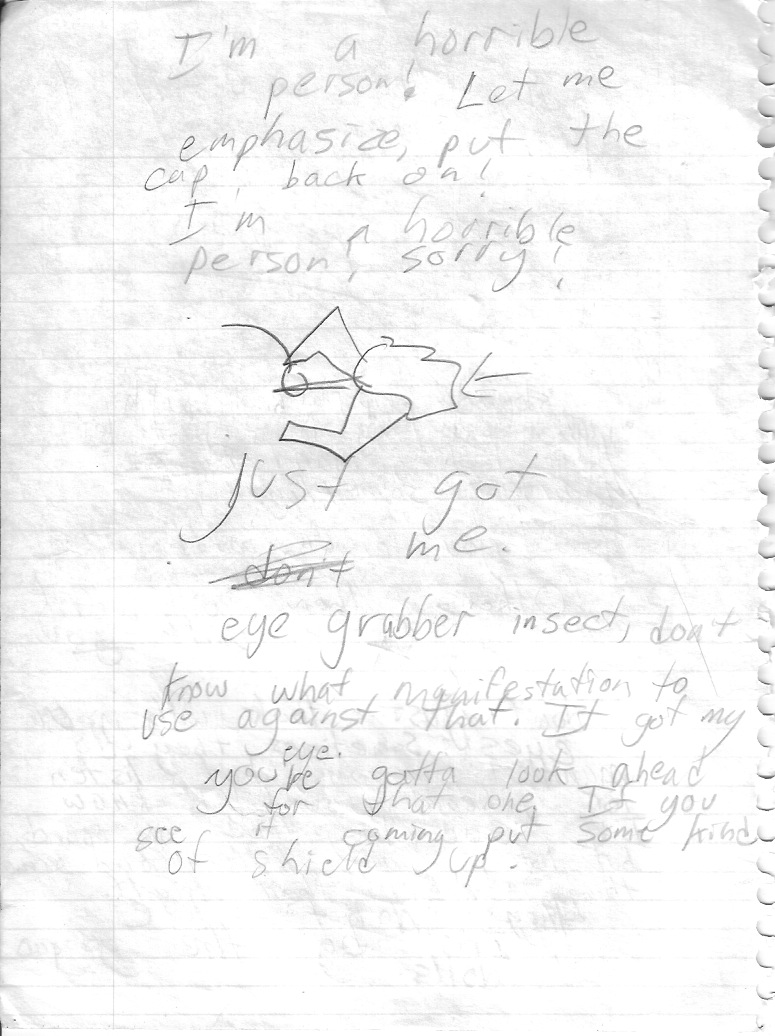 I'm a horrible
person! Let me
emphasize, put the
cap, back on!
I'm a horrible
person, sorry!
just got
me.
don't
eye grabber insect, don't
know what manifestation to
use against that. It got my
eye.
you're gotta look ahead
for that one. If you
see it coming put some kind
of shield up.